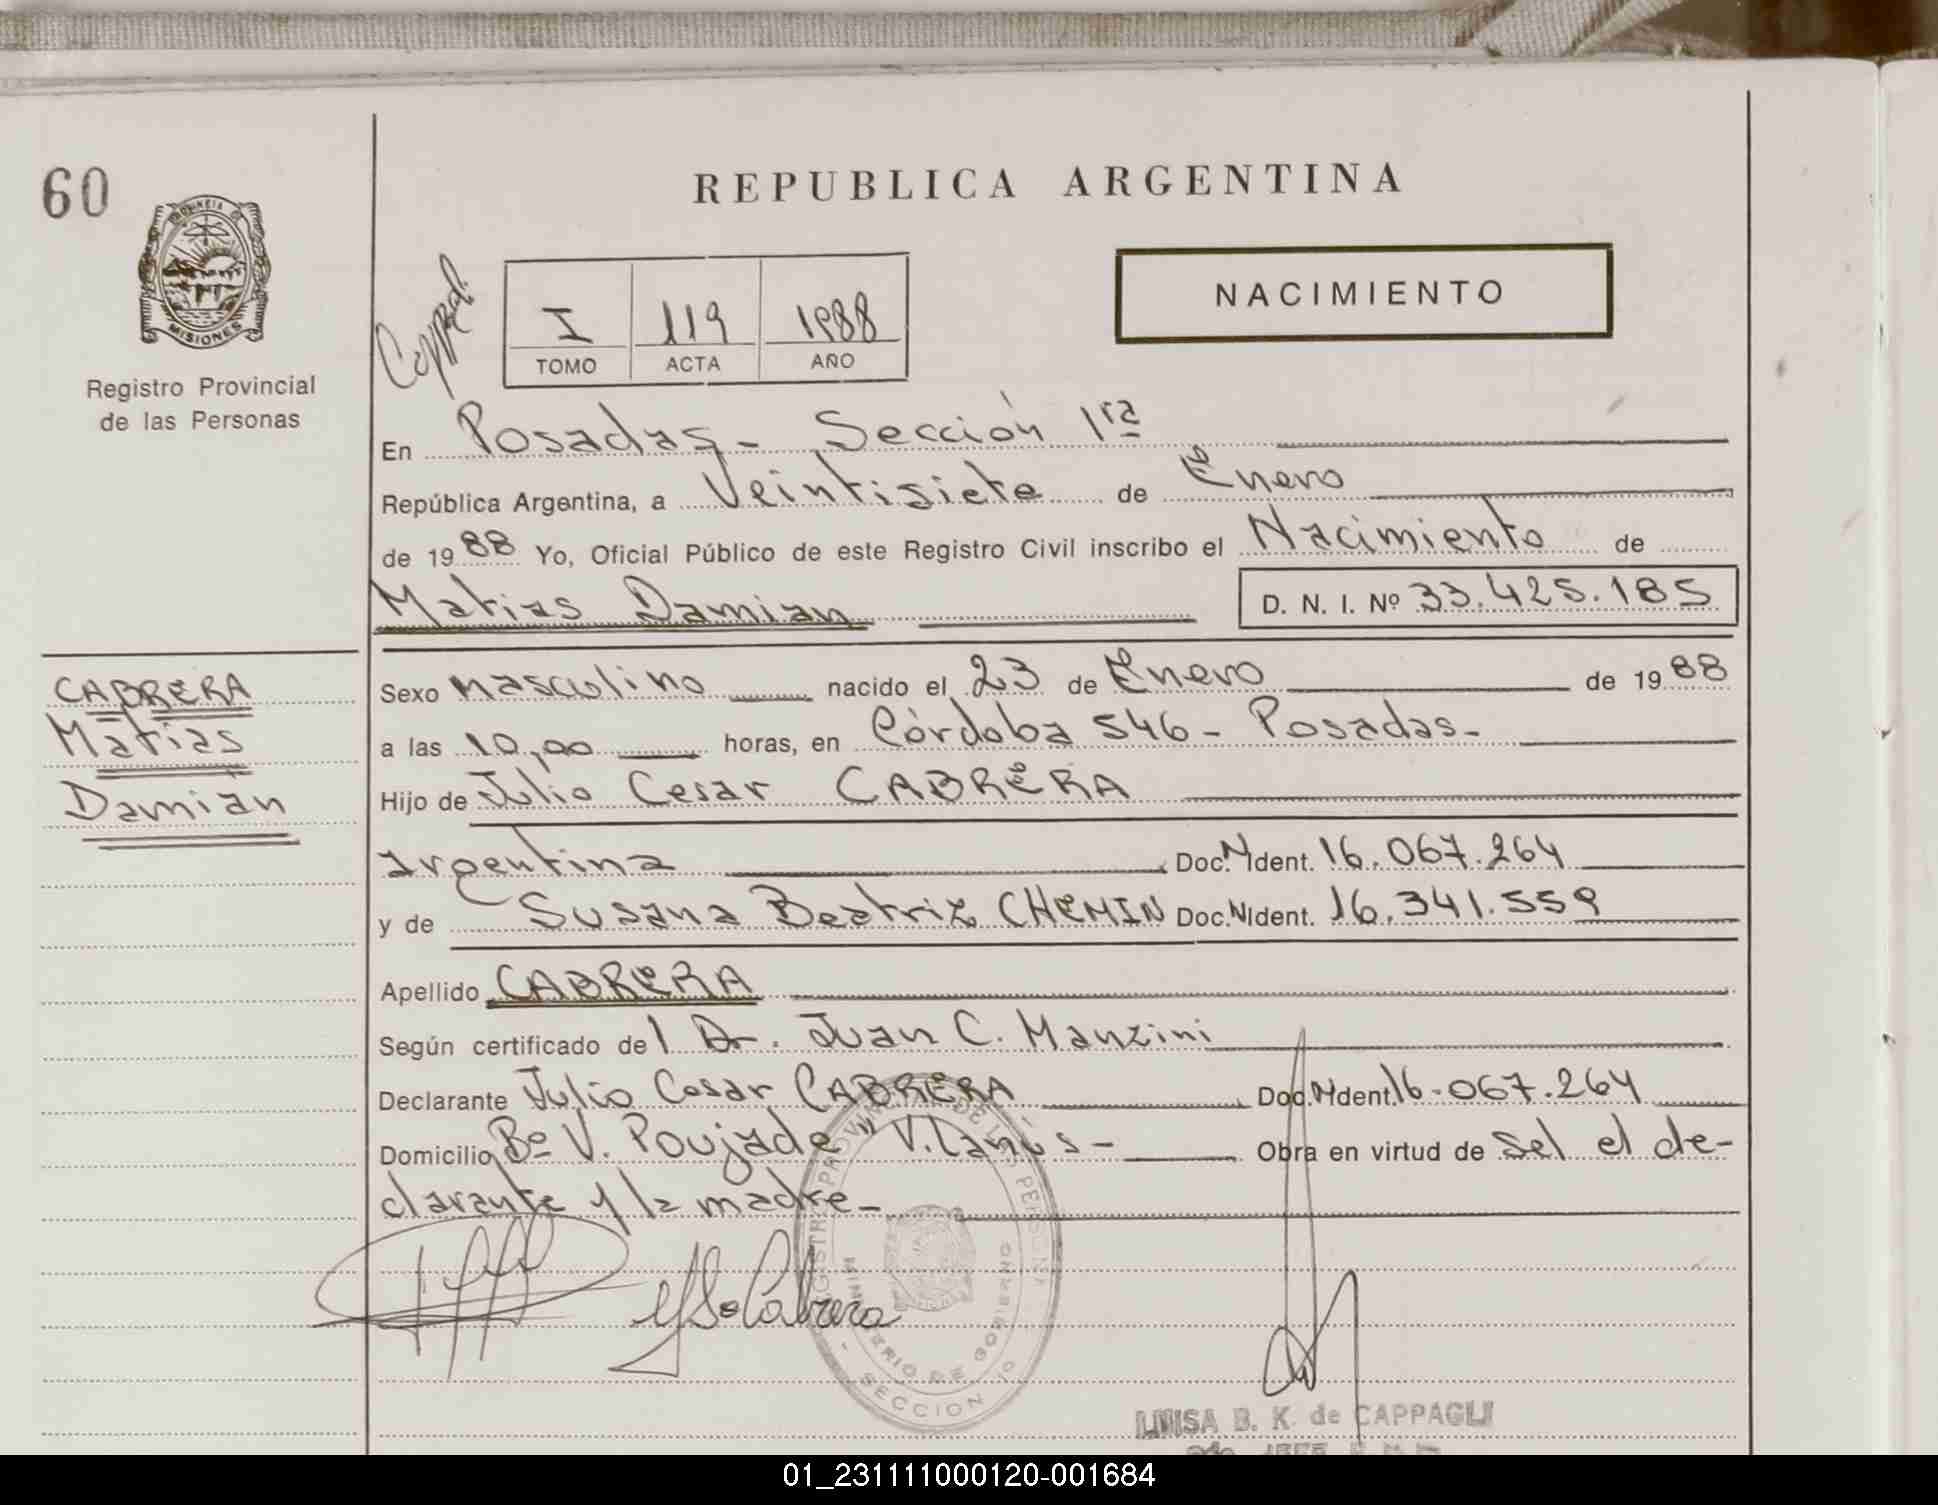 60
PROVINCIA D
MISIONES
Registro Provincial
de las Personas
REPUBLICA ARGENTINA
NACIMIENTO
I 119 1988
TOMO ACTA AÑO
En Posadas - Sección 1ra
República Argentina, a Veintisiete de Enero
de 1988 Yo, Oficial Público de este Registro Civil inscribo el Nacimiento de
Matias Damian D. N. I. Nº 33.425.185
CABRERA
Matias
Damián
Sexo masculino nacido el 23 de Enero de 1988
a las 10,00 horas, en Córdoba 546 - Posadas -
Hijo de Julio Cesar CABRERA
argentina Doc. N Ident. 16.067.264
y de Susana Beatriz CHEMIN Doc. N Ident. 16.341.559
Apellido CABRERA
Según certificado del Dr. Juan C. Manzini
Declarante Julio Cesar CABRERA Doc. N Ident. 16.067.264
Domicilio Bº V. Poujade" V. Lanús - Obra en virtud de sel el de-
clarante y la madre -
REGISTRO PROVINCIAL DE LAS PERSONAS
MINISTERIO DE GOBIERNO
- SECCION 1º
Cabrera
LUISA B. K. de CAPPAGLI
01_231111000120-001684